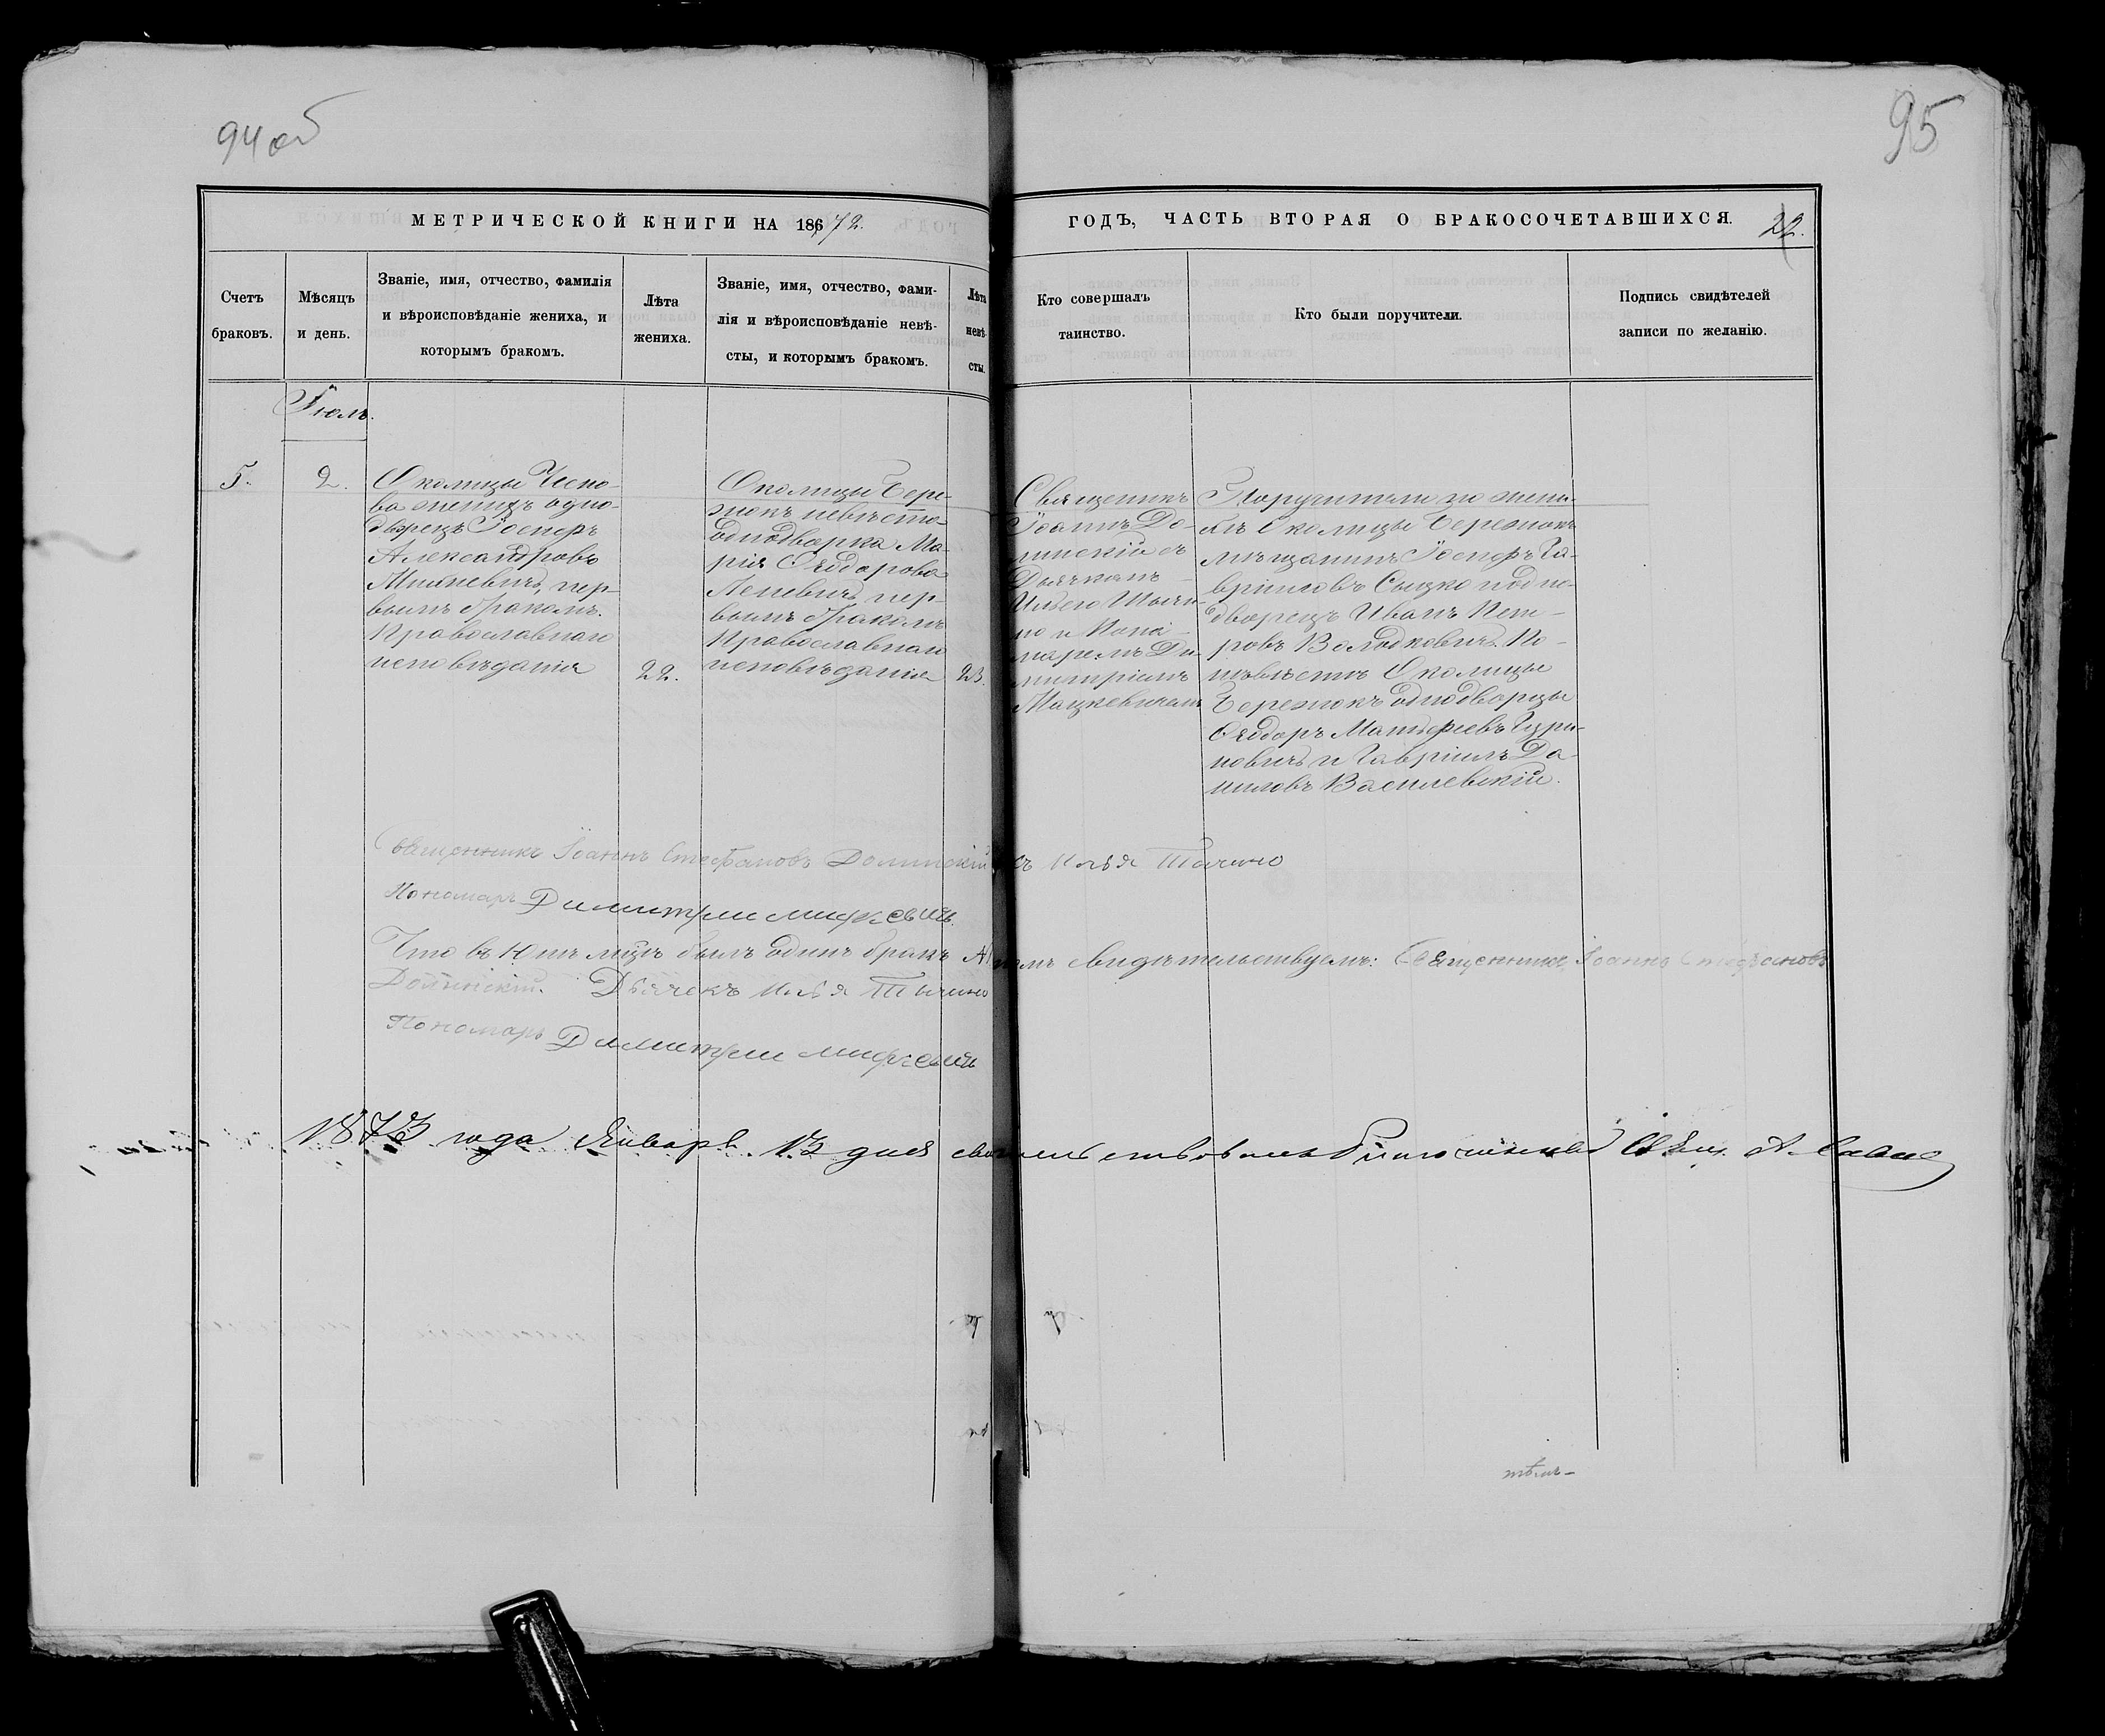 94 об
95
МЕТРИЧЕСКОЙ КНИГИ НА 18672.
ГОДЪ, ЧАСТЬ ВТОРАЯ О БРАКОСОЧЕТАВШИХСЯ.
22.
Счетъ
браковъ.
Мѣсяцъ
и день.
Званіе, имя, отчество, фамилія
и вѣроисповѣданіе жениха, и
которымъ бракомъ.
Лѣта
жениха.
Званіе, имя, отчество, фами-
лія и вѣроисповѣданіе невѣ-
сты, и которымъ бракомъ.
Лѣта
невѣ-
сты.
Кто совершалъ
таинство.
Кто были поручители.
Подпись свидѣтелей
записи по желанію.
Іюль.
5.
2.
Околицы
женихъ одно-
дворецъ Іосифъ
Александровъ
пер-
вымъ бракомъ.
Православнаго
исповѣданія
22.
Околицы Бере-
зюкъ невѣста
однодворка Ма-
рія Ѳеодорова
пер-
вымъ бракомъ
Православнаго
исповѣданія
23.
Священникъ
Іоаннъ До-
линскій съ
Дьячкомъ
Ильею Тычи-
но и Поно-
маремъ Ди-
митріемъ
Мацкевичемъ
Поручители по жени-
хѣ Околицы Березюкъ
мѣщанинъ Іосифъ Га-
вріиловъ Сыцко и одно-
дворецъ Иванъ Пет-
ровъ Володковичъ. По
невѣстѣ Околицы
Березюкъ однодворцы
Ѳеодоръ Матѳеевъ Гури-
новичъ и Гавріилъ Да-
ниловъ Василевскій.
Священникъ Іоаннъ Стефановъ Долинскій Илья Тычино
Пономарь Димитрий
Что въ Юлѣ мцѣ былъ одинъ бракъ свидѣтельствуемъ: Священникъ Іоаннъ Стефановъ
Долинскій. Дьячекъ Илья Тычино
Пономарь Димитрий
1873 года Январъ 13 дня свидѣтельствовалъ Благочинный Свящ. А.